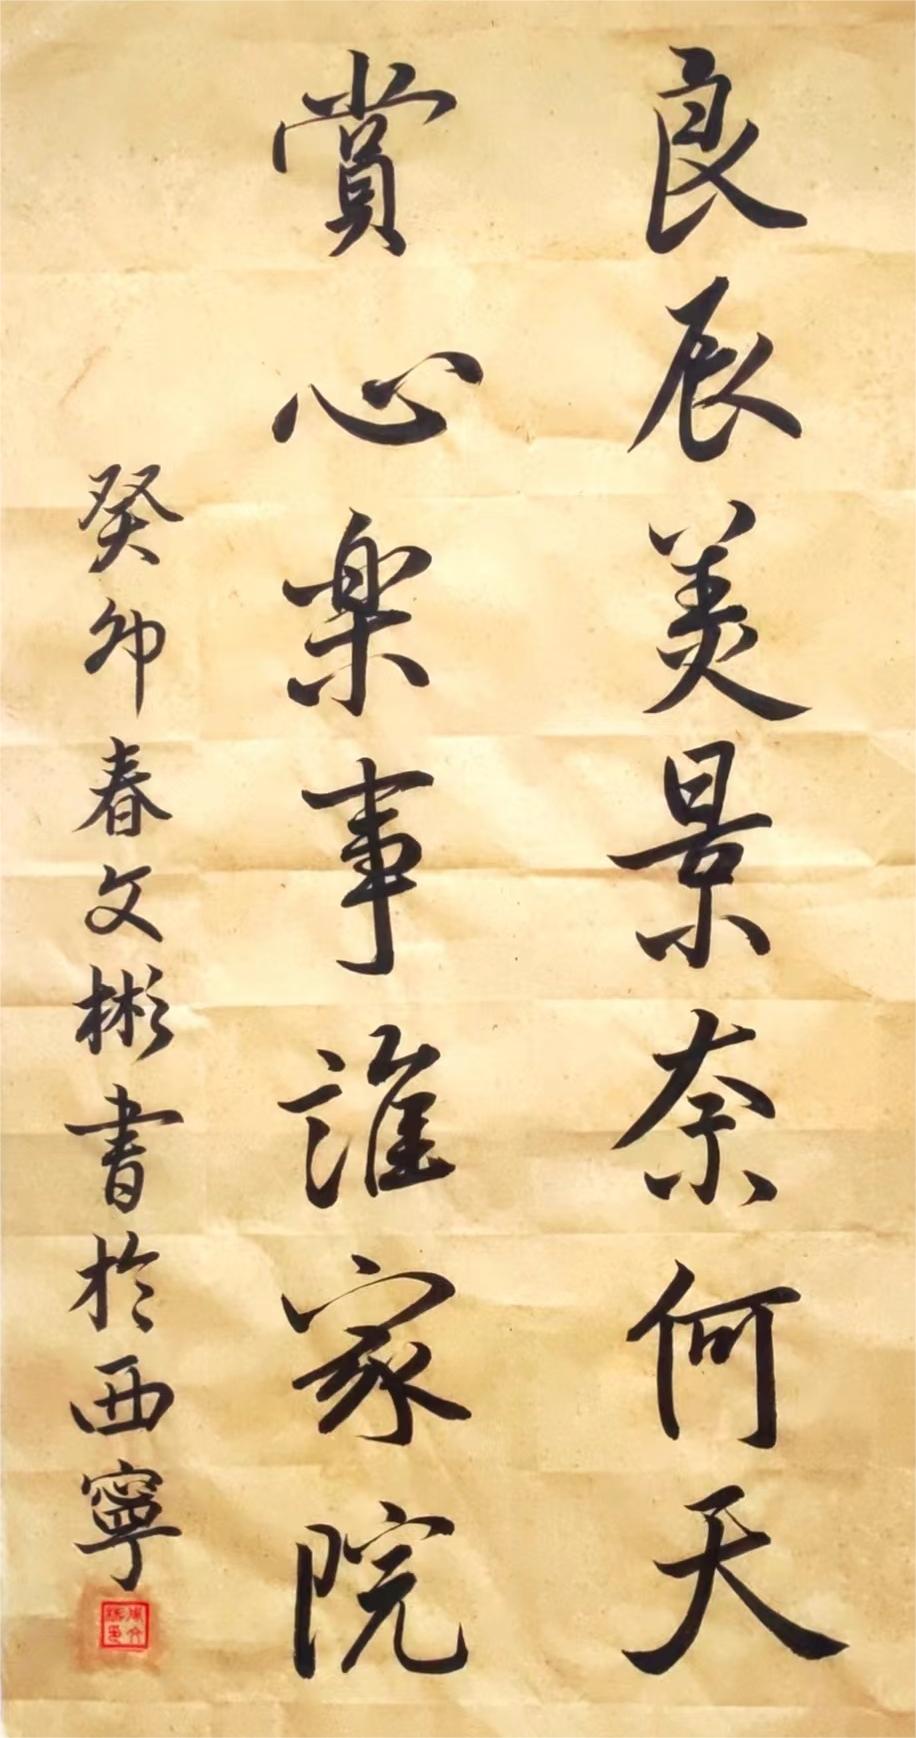 良辰美景奈何天
賞心楽事誰家院
癸卯春文彬書於西寧